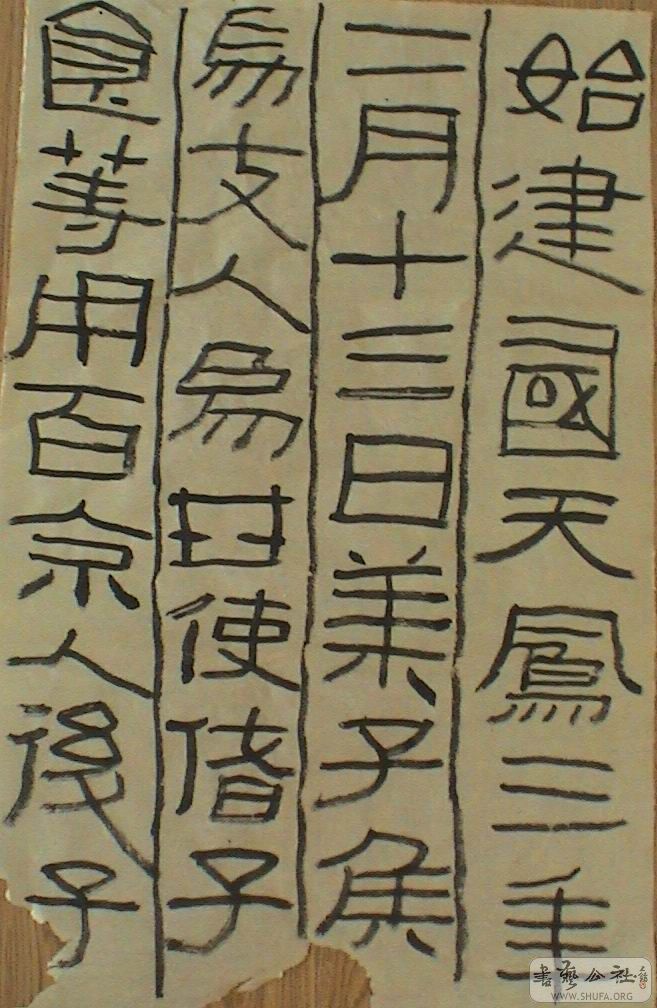 始建國天鳳三年
二月十三日萊子侯
為支人為使偖子
食等用百余人後子
書藝公社
WWW.SHUFA.ORG